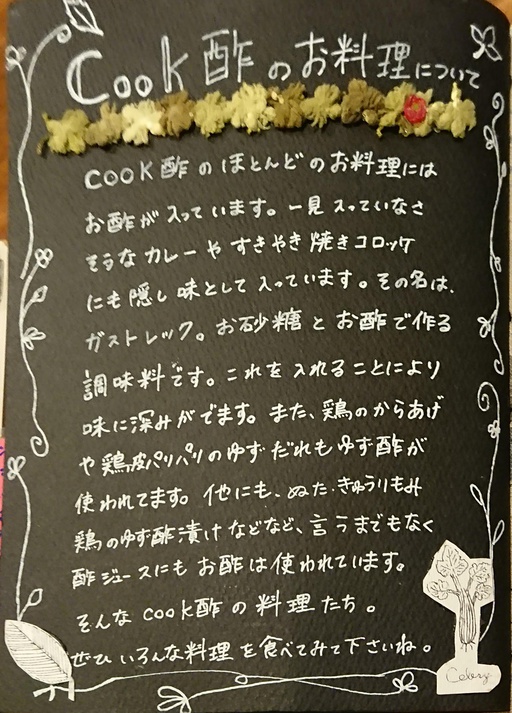 Cook酢のお料理について
COOK酢のほとんどのお料理には
お酢が入っています。一見入っていなさ
そうなカレーやすきやき焼きコロッケ
にも隠し味として入っています。その名は、
ガストレック。お砂糖とお酢で作る
調味料です。これを入れることにより
味に深みがでます。また、鶏のからあげ
や鶏皮パリパリのゆずだれもゆず酢が
使われてます。他にも、ぬた・きゅうりもみ
鶏のゆず酢漬けなどなど、言うまでもなく
酢ジュースにもお酢は使われています。
そんなcook酢の料理たち。
ぜひいろんな料理を食べてみて下さいね。
Celery